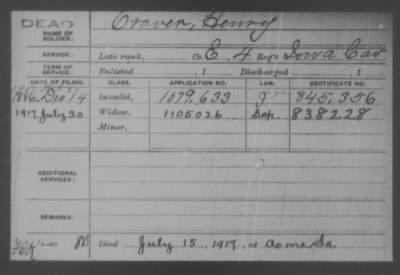 DEAD Craver, Henry
NAME OF SOLDIER:
SERVICE: Late rank, Co. E, 4 Reg't Iowa Cav
TERM OF SERVICE: Enlisted , 1 Discharged , 1
DATE OF FILING. CLASS. APPLICATION NO. LAW. CERTIFICATE NO.
Dec 14 Invalid, 1079,633 845,356
1917, July 30 Widow, 1105026 838228
Minor,
ADDITIONAL SERVICES:
REMARKS:
Died July 15, 1917, at Acme Ia.